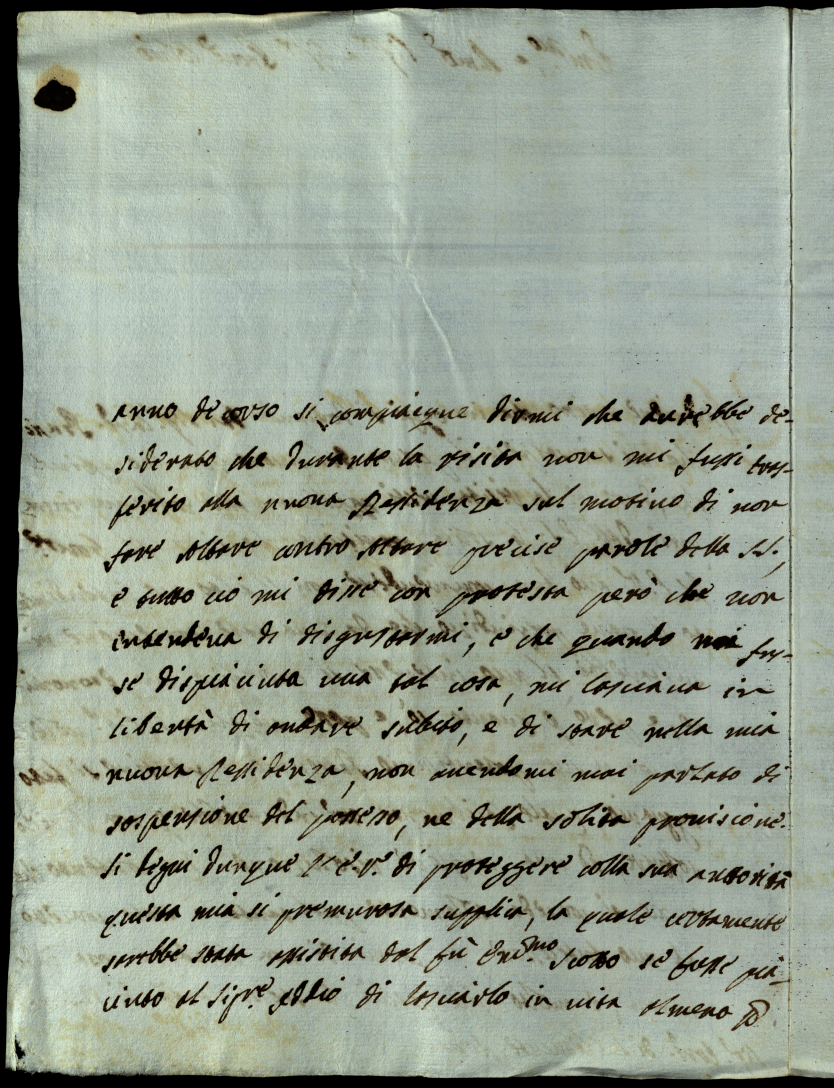 anno decorso si compiacque dirmi che averebbe de-
siderato che durante la visita non mi fussi tras-
ferito alla nuova Residenza sul motivo di non
fare Altare contro Altare precise parole della S.S.,
e tutto ciò mi disse con protesta però che non
intendeva di disgustarmi, e che quando mi fus-
se dispiaciuta una tal cosa, mi lasciava in
libertà di andare subito, e di stare nella mia
nuova Residenza, non avendomi mai parlato di
sospensione del possesso, ne della solita provisione.
Si degni dunque V. E. R. di proteggere colla sua autorità
questa mia si premurosa supplica, la quale certamente
sarebbe stata assistita dal fù Em.mo Scotto se fosse pia-
ciuto al Sig.re Iddio di lasciarlo in vita almeno p